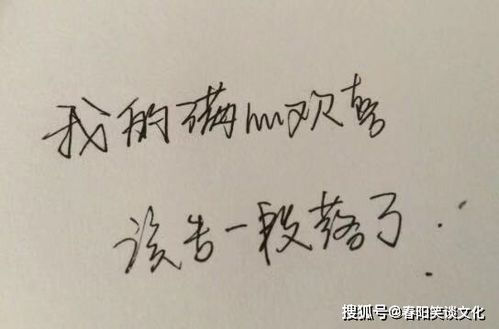 我的满心欢喜
该告一段落了.
搜狐号@春阳笑谈文化